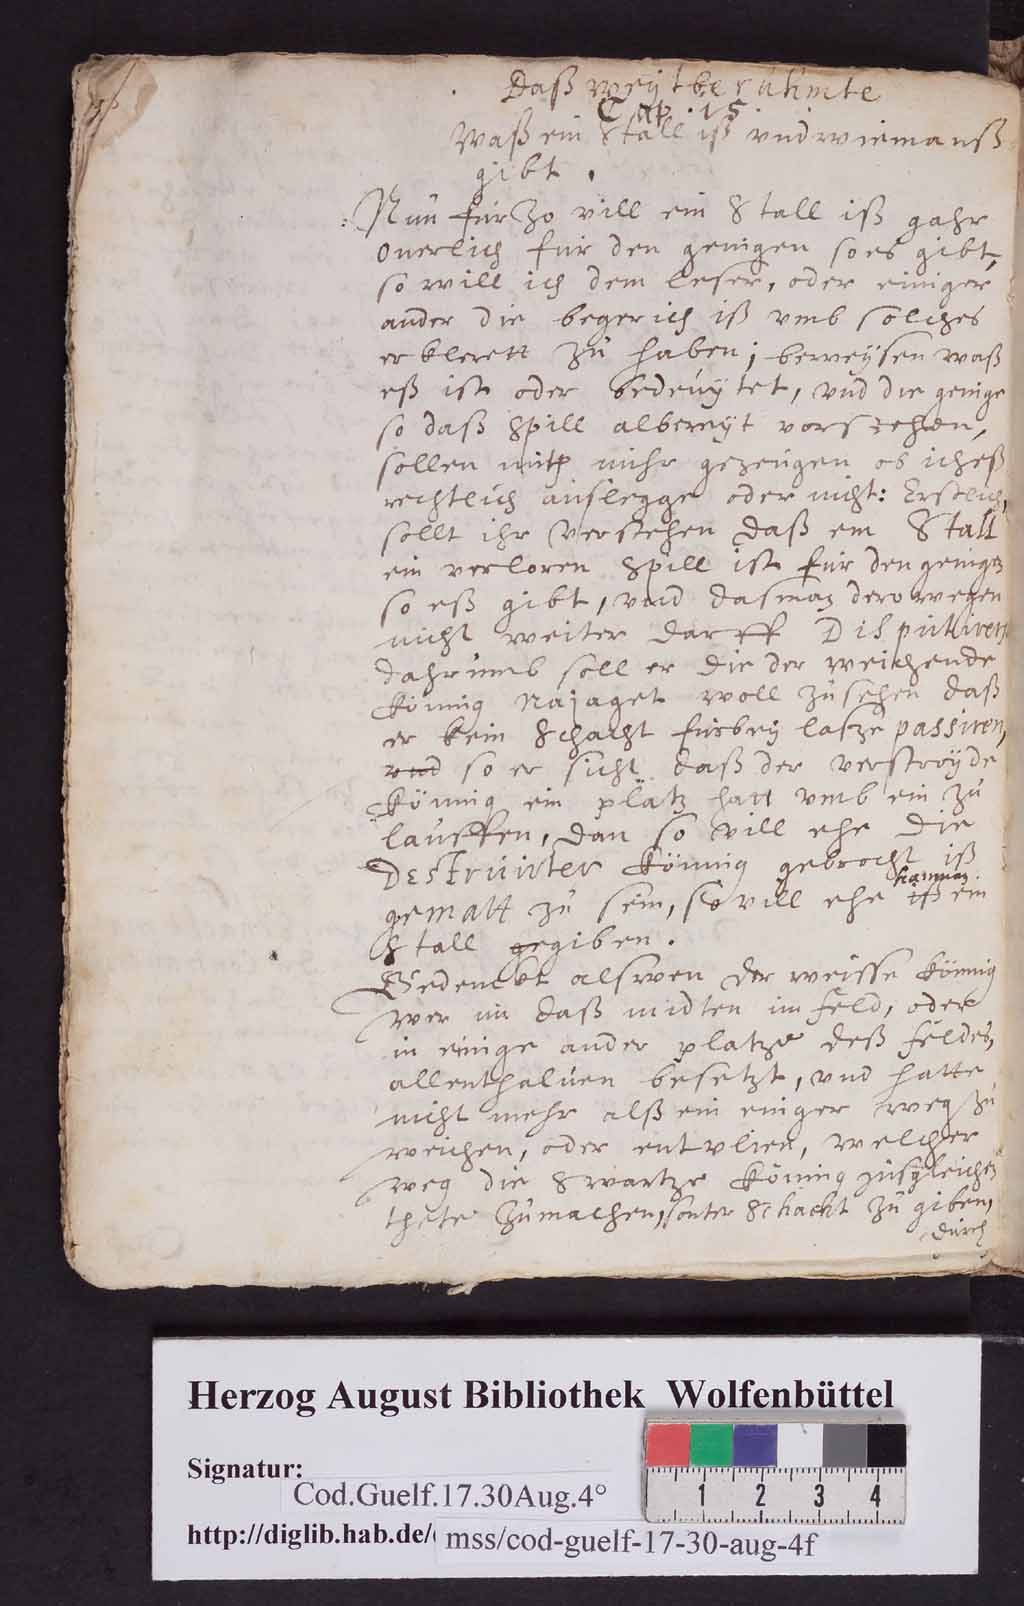 Daß weytberühmte
Cap. 15.
Waß ein Stall iß vnd wiemanß
gibt.
Nun für zo vill ein Stall iß gahr
onerlich für den genigen so es gibt,
so will ich dem leser, oder einiger
ander die begerich iß vmb solches
erklerett zu haben; beweysen waß
eß ist oder bedeuytet, vnd die genige
so daß Spill albereyt vorstehen,
sollen mitt mihr gezeugen ob icheß
rechtlich auslegge oder nicht: Erstlich,
sollt ihr verstehen daß ein Stall
ein verloren Spill ist für den genigen
so eß gibt, vnd dasman derowegen
nicht weiter darff Disputiren
dahrumb soll er die der weichende
Könnig Najaget woll zusehen daß
er kein Schacht fürbey lasze passiren,
vnd so er sicht daß der verstroyde
Könnig ein platz hatt vmb ein zu
lauffen, dan so vill ehe die
Destruirter Könnig gebrocht iß
gematt zu sein, so vill ehe iß kanman ein
Stall gegiben.
Gedenckt alswen der weisse Könnig
wer in daß midten im feld, oder
in einige ander platze deß feldes,
allenthaluen besetzt, vnd hatte
nicht mehr alß ein einiger weg zu
weichen, oder entvlien, welcher
weg die Swartze Könnig zusgleichen
thete zumachen, sonter Schackt zu giben,
durch
Herzog August Bibliothek Wolfenbüttel
Signatur:
Cod.Guelf.17.30Aug.4°
http://diglib.hab.de/
mss/cod-guelf-17-30-aug-4f
1 2 3 4